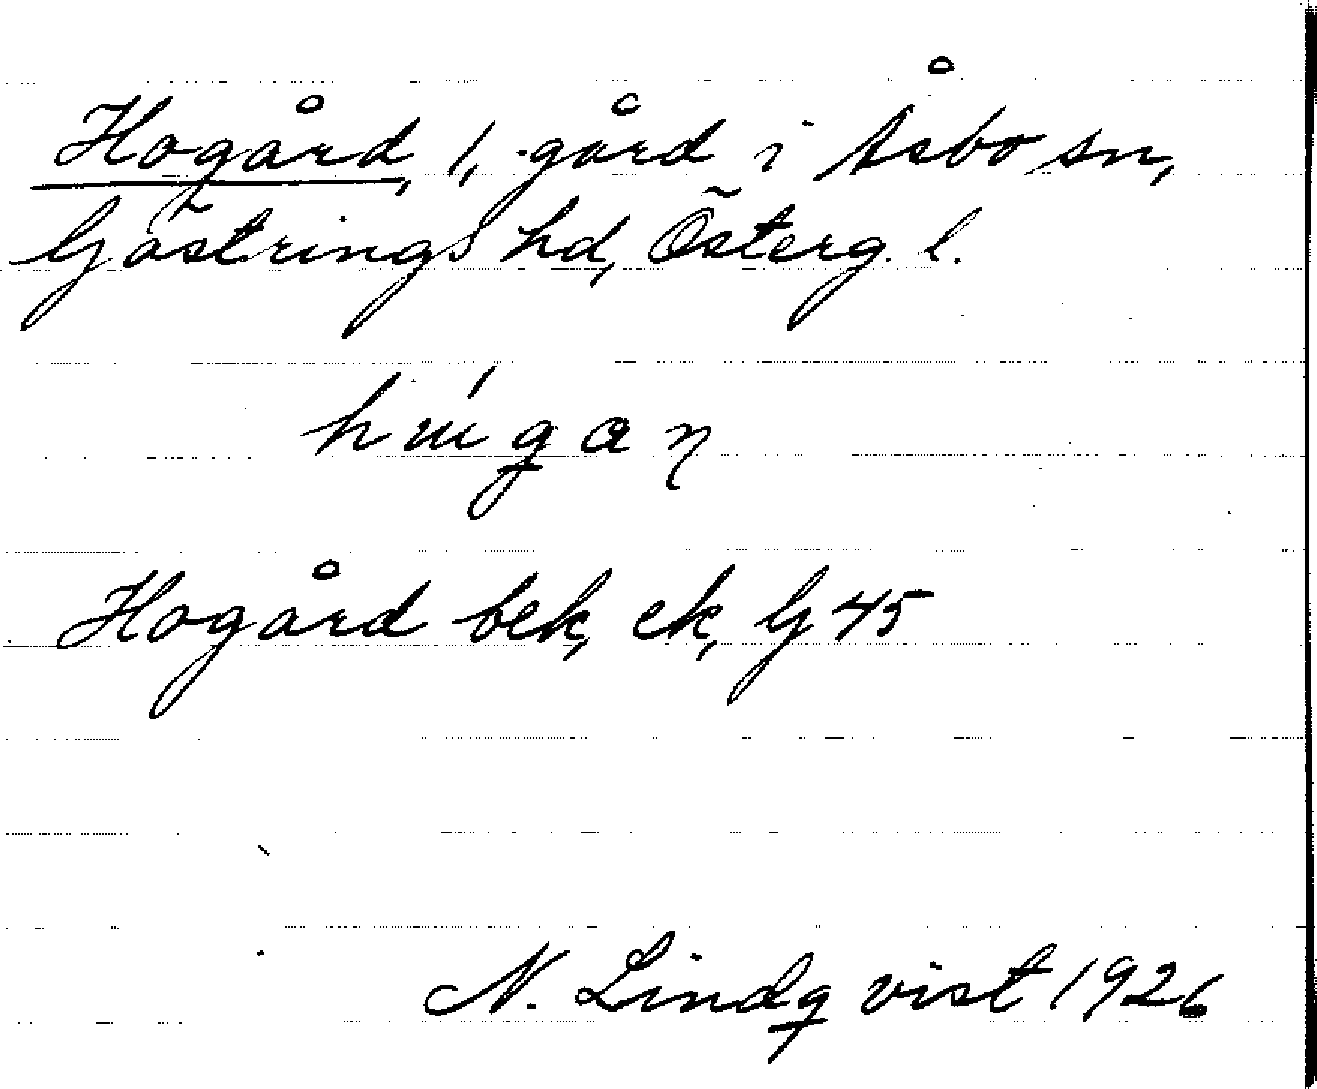 Hogård, 1, gård i Åsbo sn,
Göstrings hd, Österg. l.
Hogård bek, ek, G 45
N. Lindqvist 1926